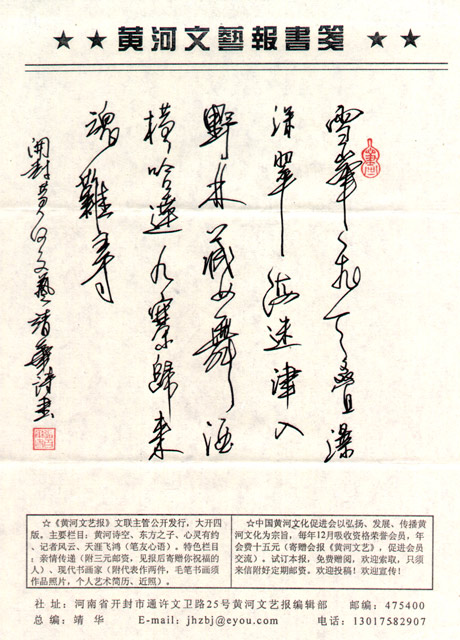 ★ ★ 黄河文藝報書箋 ★ ★
雪峯飛下疊瀑
深翠海迷津入
野林藏女舞酒
橫哈達九寨歸來
魂難尋
開封黄河文藝靖華詩書
☆《黄河文艺报》文联主管公开发行，大开四
版。主要栏目：黄河诗空、东方之子、心灵有约
、记者风云、天涯飞鸿（笔友心语）。特色栏目
：亲情传递（附三元邮资，见报后寄赠你祝福的
人）、现代书画家（附代表作两件，毛笔书画须
作品照片，个人艺术简历、近照）。
☆中国黄河文化促进会以弘扬、发展、传播黄
河文化为宗旨，每年12月吸收资格荣誉会员，年
会费十五元（寄赠会报《黄河文艺》，促进会员
交流）。试订本报，免费赠阅，欢迎索取，只须
来信附好定期邮资，欢迎投稿！欢迎宣传！
社 址：河南省开封市通许文卫路25号黄河文艺报编辑部 邮编：475400
总 编：靖 华 E-mail：jhzbj@eyou.com 电话：13017582907